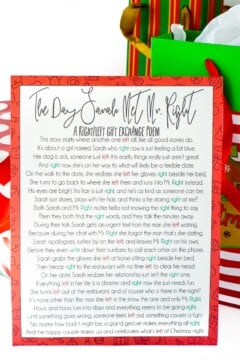 The Day Sarah Met Mr. Right
A RIGHT/LEFT GIFT EXCHANGE POEM
This story starts where another one left off, like all good stories do.
It's about a girl named Sarah who right now is just feeling a bit blue.
Her dog is sick, someone just left this earth, things really just aren't great.
And right now she's on her way to what will likely be a terrible date.
On the walk to the date, she realizes she left her gloves right beside her bed,
She turns to go back to where she left them and runs into Mr. Right instead.
His eyes are bright, his hair is just right, and he's as kind as someone can be.
Sarah just stares, plays with her hair, and thinks is she staring right at me?
Both Sarah and Mr. Right mutter hello not knowing the right thing to say.
Then they both find the right words, and they talk the minutes away.
During their talk Sarah gets an urgent text from the man she left waiting
Because during her chat with Mr. Right she forgot the man that's she dating.
Sarah apologizes, rushes by on the left, and leaves Mr. Right on his own,
Before they even write down their numbers to call each other on the phone.
Sarah grabs the gloves she left at home sitting right beside her bed,
Then heads right to the restaurant with no time left to clear her head.
On her date Sarah realizes her relationship just isn't the right one,
Everything left in her life is a disaster and right now she just needs fun.
She turns left out of the restaurant, and of course is there in the right?
It's none other than the man she left in the snow, the one and only Mr. Right
Hours and hours turn into days and everything seems to be going right,
Until something goes wrong, someone feels left out, something causes a fight.
No matter how bad it might be, a grand gesture makes everything all right,
And the happy couple makes up and celebrates what's left of Christmas night.